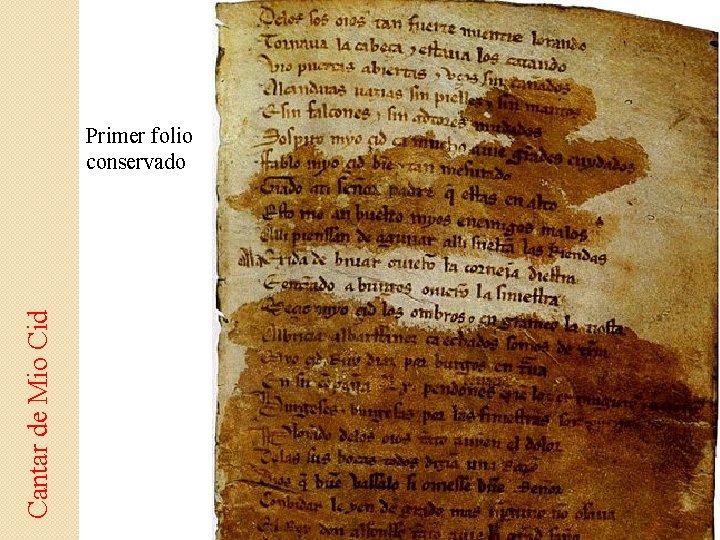 Cantar de Mio Cid
Primer folio
conservado
Delos sos oios tan fuerte mientre lorando
Tornava la cabeca y estava los catando
Vio puertas abiertas y vços sin cañados
Alcandaras vazias sin pielles y sin mantos
E sin falcones y sin adtores mudados
Sospiro myo çid ca mucho auie grãdes cuydados
Fablo myo çid biẽ y tan mesurado
Grado ati señor padre q̃ estas en alto
Esto me an buelto myos enemigos malos
Alli pienssan de aguiiar alli sueltã las Riendas
Exida de biuar ouierõ la corneia diestra
Entrando a burgos ouierõ la siniestra
Meçio myo çid los ombros y en grameo la tiesta
Albricia albarffanez ca echados somos de trr̃a
Myo çid Ruy diaz por burgos en traua
En su cõpaña pendones
Burgeses burgesas por las finiestras son
Plorando delos oios tãto auyen el dolor
Delas sus bocas todos dizian una Razo
Dios q̃ buẽ vassalo si ouiesse buẽ Señor
Conbidar le yen de grado mas ninguno no osaua
El Rey don alfonsso tãto auie la grãd saña